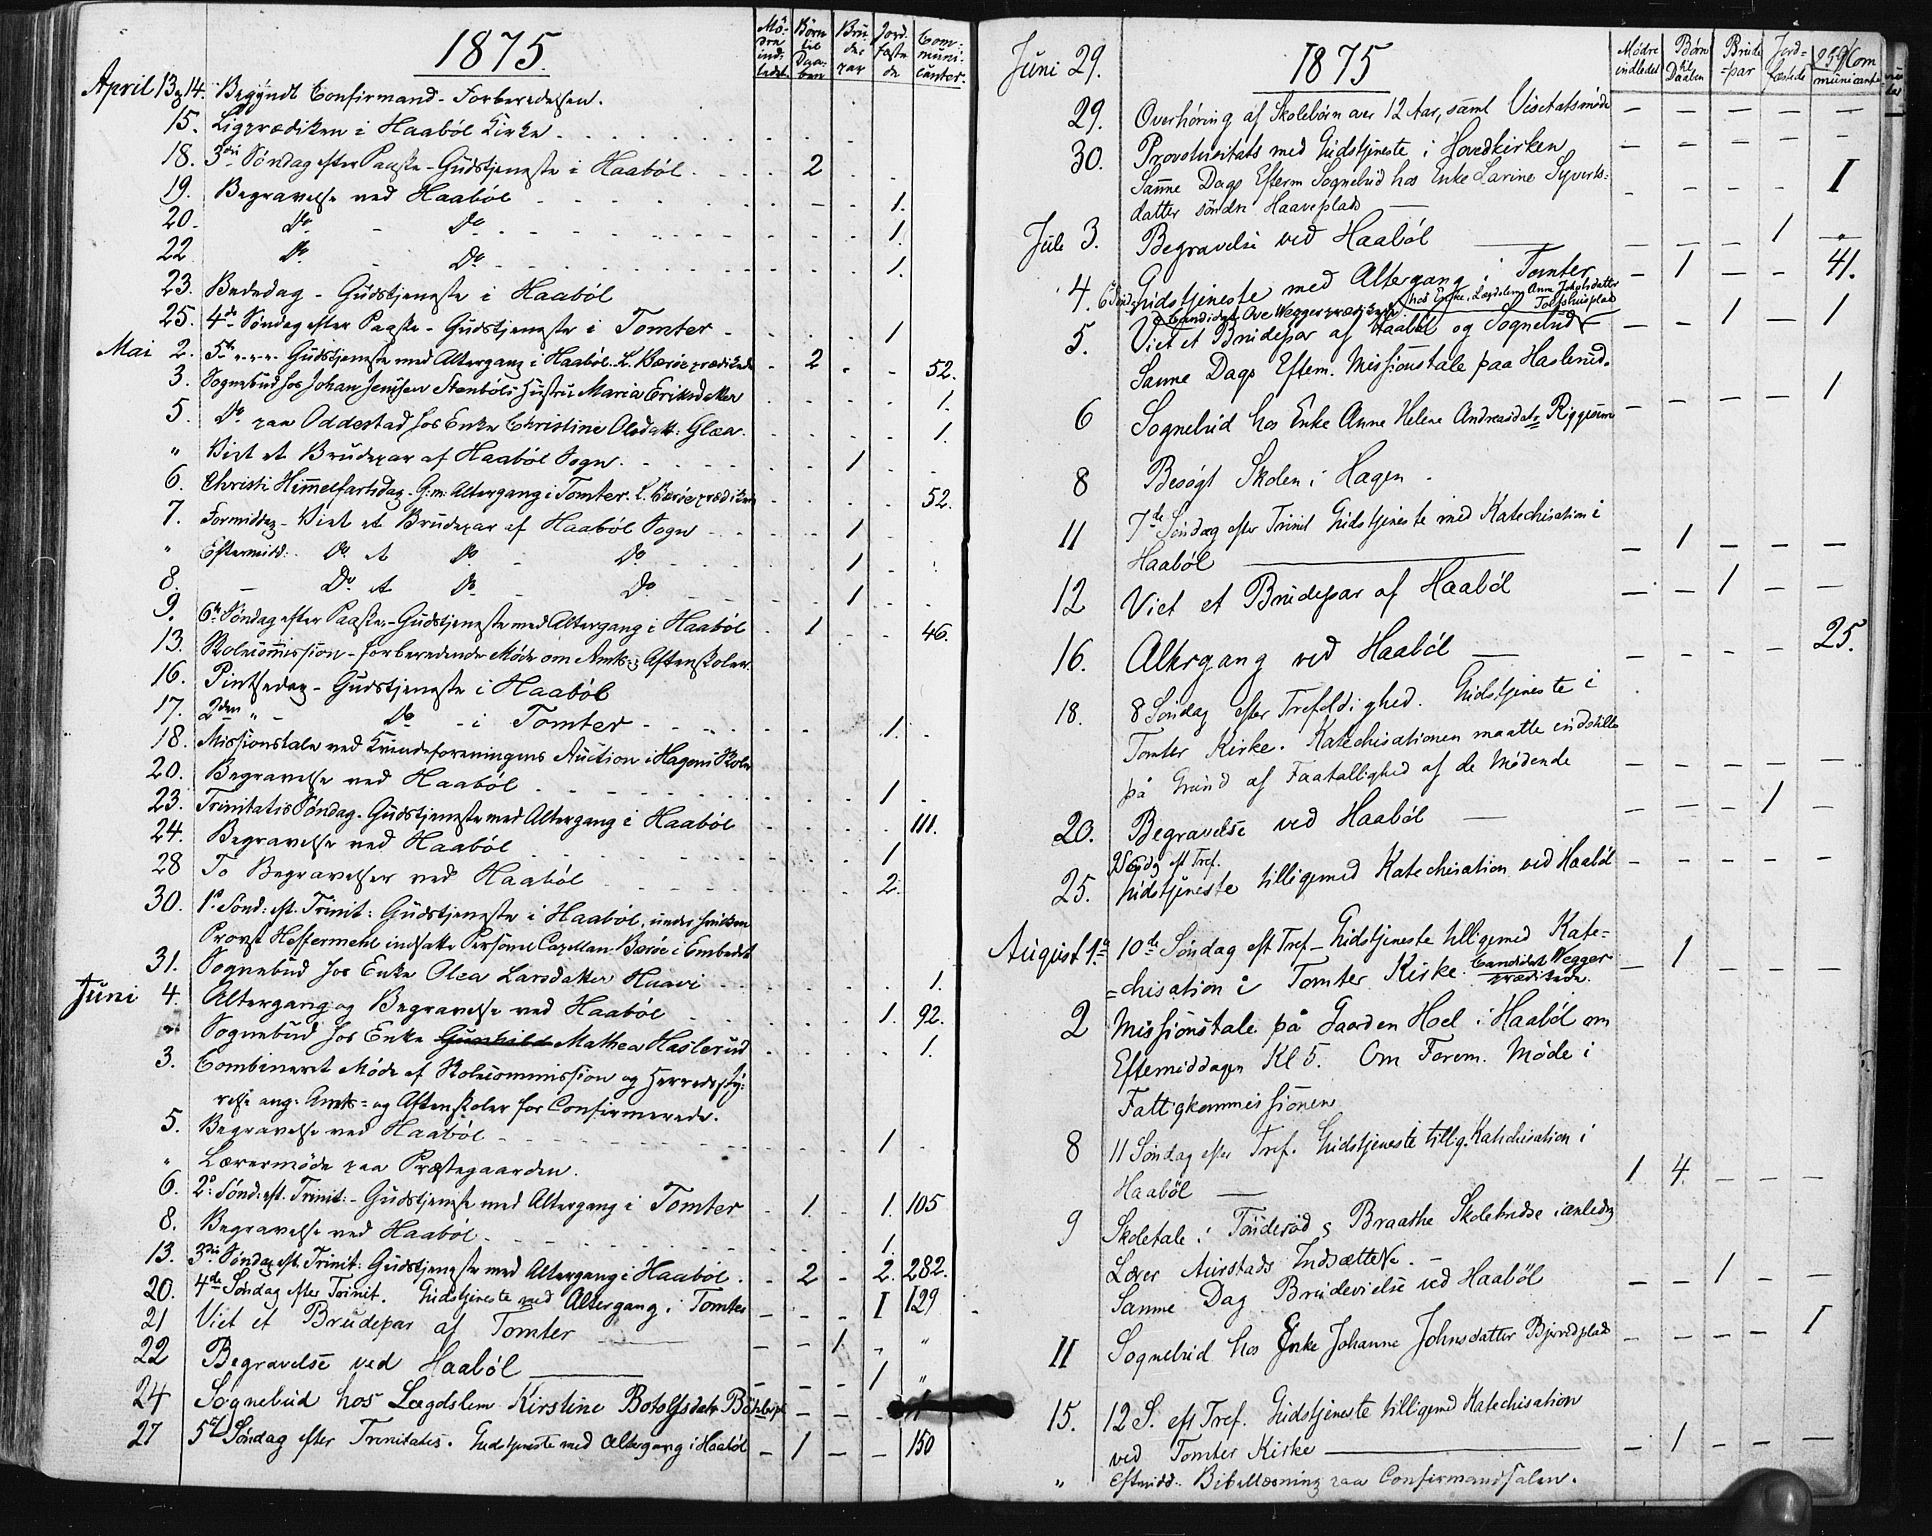 1875.
Mö-dre indledet. Börn til Daaben Brudepar Jordfæstede Communicanter.
April 13 & 14. Begyndt Confirmand-Forberedelsen.
15. Ligprædiken i Haaböl Kirke
18. 3die Söndag efter Paaske - Gudstjeneste i Haaböl. 2
19. Begravelse ved Haaböl 1.
20. Do - Do 1.
22. Do - Do 1.
23. Bededag - Gudstjeneste i Haaböl
25. 4de Söndag efter Paaske - Gudstjeneste i Tomter 1
Mai 2. 5te " " " Gudstjeneste med Altergang i Haaböl. K. Bærøe prædikede 2 52.
3. Sognebud hos Johan Jensen Stenböls Hustru Maria Eriksdatter 1.
5. Do paa Oddestad hos Enke Christine Olsdatt: Glea. 1.
" Viet et Brudepar af Haaböl Sogn. 1
6. Christi Himmelfartsdag. G: m: Altergang i Tomter. K. Bærøe prædikede 52.
7. Formiddag - Viet et Brudepar af Haaböl Sogn 1
" Eftermidd: Do et Do - Do 1
8. - Do et Do - Do 1
9. 6te Söndag efter Paaske - Gudstjeneste med Altergang i Haaböl 1 46.
13. Skolecommission - forberedende Möde om Amts- & Aftenskoler.
16. Pintsedag - Gudstjeneste i Haaböl
17. 2den " - Do - i Tomter 1.
18. Missionstale ved Kvindeforeningens Auction i Hagens Skole
20. Begravelse ved Haaböl 1
23. Trinitatis Söndag. Gudstjeneste med Altergang i Haaböl 111.
24. Begravelse ved Haaböl 1
28 To Begravelser ved Haaböl 2.
30. 1ste Sönd: eft. Trinit: Gudstjeneste i Haaböl, under hvilken
Provst Heffermehl indsatte Personel Capellan Bærøe i Embedet
31. Sognebud hos Enke Olea Larsdatter Haavi 1.
Juni 4. Altergang og Begravelse ved Haaböl 1. 92.
" Sognebud hos Enke Gunhild Mathea Haslerud 1.
3. Combineret Möde af Skolecommission og Herredssty-
relse ang. Amts- og Aftenskoler for Confirmerede.
5. Begravelse ved Haaböl 1
" Lærermöde paa Præstegaarden.
6. 2den Sönd: eft. Trinit: - Gudstjeneste med Altergang i Tomter 1. 1. 105
8. Begravelse ved Haaböl. 1.
13. 3die Söndag eft. Trinit: Gudstjeneste med Altergang i Haaböl. 2 2. 282.
20. 4de Söndag efter Trinit. Gudstjeneste med Altergang i Tomter I 129
21 Viet et Brudepar af Tomter 1 "
22 Begravelse ved Haaböl 1 "
24 Sognebud hos Lægdslem Kirstine Botolfsdatr
27 5te Söndag efter Trinitatis. Gudstjeneste med Altergang i Haaböl 1 150
Juni 29. 1875
Mödre indledet Börn til Daaben Brude=par Jord=fæstede Communicanter
29. Overhöring af Skolebörn over 12 Aar, samt Visitatsmöde
30. Provstivisitats med Gudstjeneste i Hovedkirken
Samme Dags Efterm Sognebud hos Enke Larine Syverts- I
datter söndre Haaveplads
Juli 3. Begravelse ved Haaböl 1
4. 6te Sönd Gudstjeneste med Altergang i Tomter 1 41.
Candidat Ove Wegger prædikede. hos Enke, Lægdslem Anne Jakobsdatter
5. Viet et Brudepar af Haaböl og Sognebud 1 1
Samme Dags Efterm. Missionstale paa Haslerud.
6 Sognebud hos Enke Anne Helene Andreasdatr 1
8 Besögt Skolen i Hagen
11 7de Söndag efter Trinit Gudstjeneste med Katechisation i
Haaböl 1
12 Viet et Brudepar af Haaböl 1
16. Altergang ved Haaböl 25.
18. 8 Söndag efter Trefoldighed. Gudstjeneste i
Tomter Kirke. Katechisationen maatte indstilles
på Grund af Faatallighed af de Mödende
20. Begravelse ved Haaböl 1
9 Söndg eft Tref.
25. Gudstjeneste tilligemed Katechisation ved Haaböl
August 1ste 10de Söndag eft Tref - Gudstjeneste tilligemed Kate-
=chisation i Tomter Kirke. Candidat Wegger prædikede. 1
2 Missionstale på Gaarden Hoel i Haaböl om
Eftermiddagen Kl 5. Om Form. Möde i
Fattigkommissionen
8 11 Söndag efter Tref. Gudstjeneste tillig. Katechisation i
Haaböl 1. 4.
9 Skoletale i Tönderöd & Braathe Skolekredse i anledng
Lærer Aurstads Indsættelse.
Samme Dag Brudevielse ved Haaböl 1
11 Sognebud hos Enke Johanne Johnsdatter I
15. 12 S. eft Tref. Gudstjeneste tilligemed Katechisation
ved Tomter Kirke 1
" Eftmidd. Bibellæsning paa Confirmandsalen.